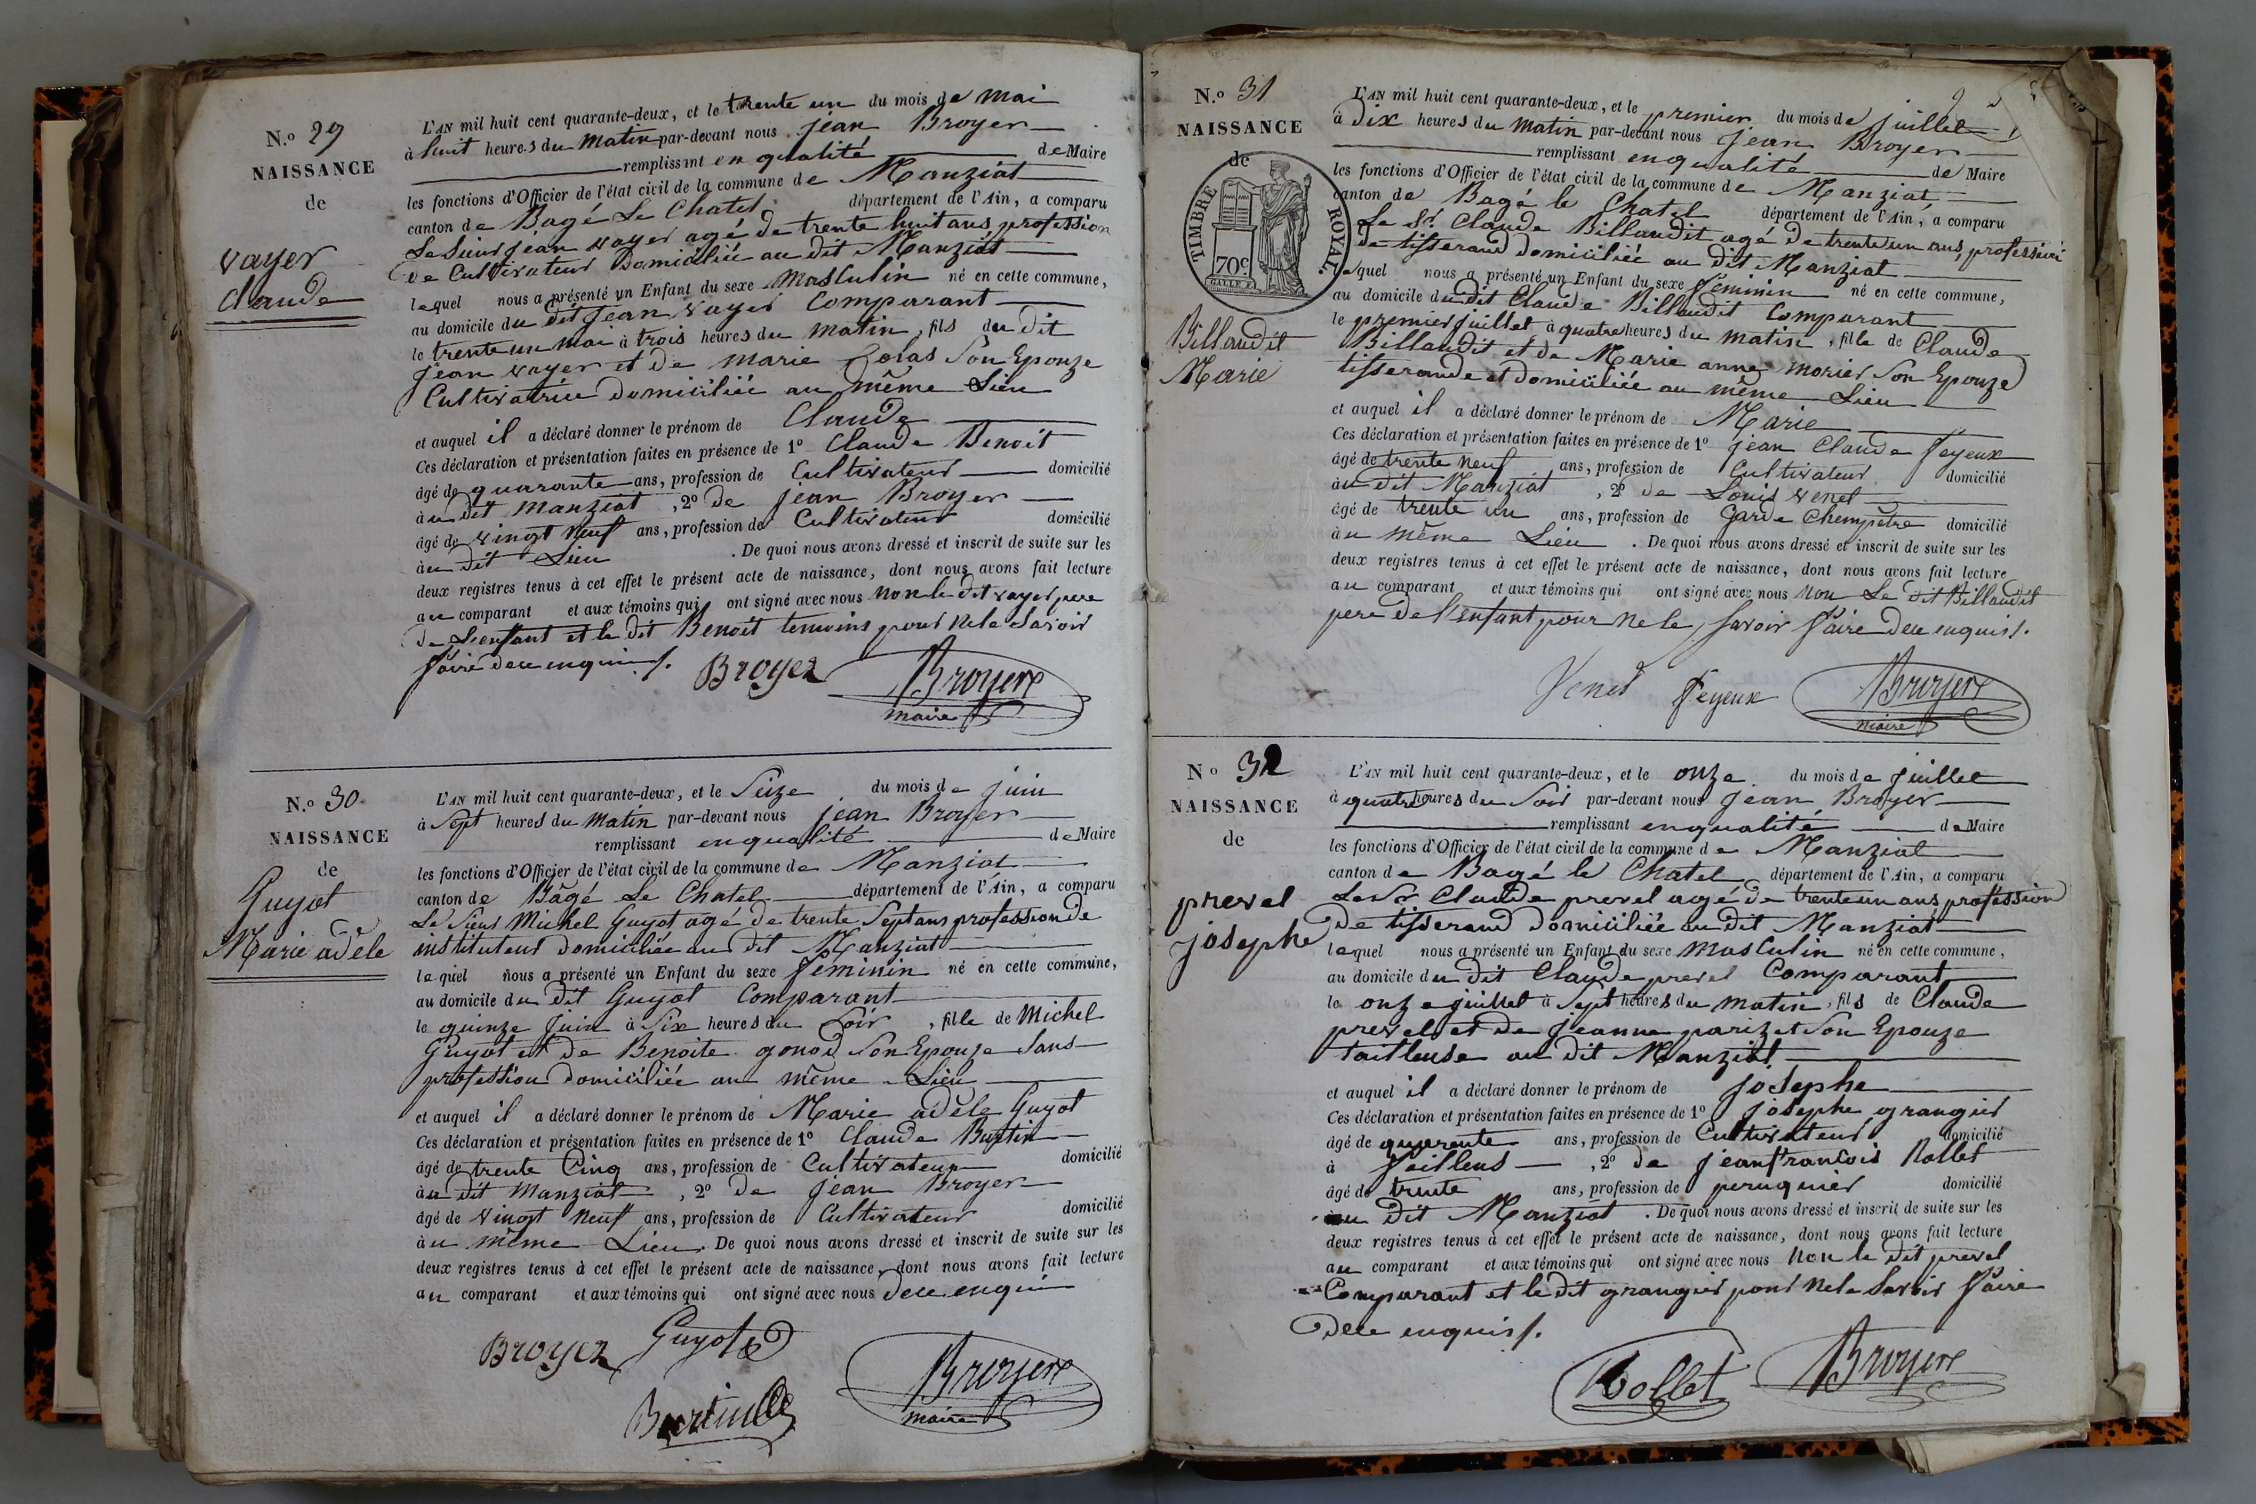 N.º 29
NAISSANCE
de
vayer
Claude
L'AN mil huit cent quarante-deux, et le trente un du mois de mai
à huit heures du matin par-devant nous jean Broyer
remplissant en qualité de Maire
les fonctions d'Officier de l'état civil de la commune de Manziat
canton de Bagé Le Chatel département de l'Ain, a comparu
Le Sieur jean vayer agé de trente huit ans, profession
de Cultivateur Domiciliée au dit Manziat
lequel nous a présenté un Enfant du sexe masculin né en cette commune,
au domicile du dit jean vayer Comparant
le trente un mai à trois heures du matin, fils du dit
jean vayer et de marie Colas Son Epouze
Cultivatrice domiciliée au même Lieu
et auquel il a déclaré donner le prénom de Claude
Ces déclaration et présentation faites en présence de 1º Claude Benoit
âgé de quarante ans, profession de Cultivateur domicilié
au dit manziat, 2º de jean Broyer
âgé de vingt neuf ans, profession de Cultivateur domicilié
au dit Lieu. De quoi nous avons dressé et inscrit de suite sur les
deux registres tenus à cet effet le présent acte de naissance, dont nous avons fait lecture
au comparant et aux témoins qui ont signé avec nous non le dit vayer pere
de L'enfant et le dit Benoit temoins pour ne le Savoir
faire dece enquis /.
Broyer Broyer
maire
N.º 30
NAISSANCE
de
Guyot
Marie adèle
L'AN mil huit cent quarante-deux, et le Seize du mois de juin
à Sept heures du matin par-devant nous jean Broyer
remplissant en qualité de Maire
les fonctions d'Officier de l'état civil de la commune de Manziat
canton de Bâgé Le Chatel département de l'Ain, a comparu
Le Sieur Michel Guyot agé de trente Sept ans profession de
instituteur domiciliée au dit Manziat
lequel nous a présenté un Enfant du sexe féminin né en cette commune,
au domicile du dit Guyot Comparant
le quinze juin à Six heures du Soir, fille de Michel
Guyot et de Benoite gonod Son Epouze Sans
profession domiciliée au même Lieu
et auquel il a déclaré donner le prénom de Marie adèle Guyot
Ces déclaration et présentation faites en présence de 1º Claude Burtin
âgé de trente Cinq ans, profession de Cultivateur domicilié
au dit manziat, 2º de jean Broyer
âgé de vingt neuf ans, profession de Cultivateur domicilié
au même Lieu. De quoi nous avons dressé et inscrit de suite sur les
deux registres tenus à cet effet le présent acte de naissance, dont nous avons fait lecture
au comparant et aux témoins qui ont signé avec nous dece enquis
Broyer Guyot
Broyer
maire
N.º 31
NAISSANCE
de
TIMBRE ROYAL.
70c
Billaudit
Marie
L'AN mil huit cent quarante-deux, et le premier du mois de juillet
à Dix heures du matin par-devant nous jean Broyer
remplissant en qualité de Maire
les fonctions d'Officier de l'état civil de la commune de Manziat
canton de Bagé le Chatel département de l'Ain, a comparu
Le Sr. Claude Billaudit agé de trente un ans, profession
de tisserand domiciliée au dit Manziat
lequel nous a présenté un Enfant du sexe féminin né en cette commune,
au domicile du dit Claude Billaudit Comparant
le premier juillet à quatre heures du matin, fille de Claude
Billaudit et de Marie anne morier Son Epouze
tisserande et domiciliée au même Lieu
et auquel il a déclaré donner le prénom de Marie
Ces déclaration et présentation faites en présence de 1º jean Claude feyeux
âgé de trente neuf ans, profession de Cultivateur domicilié
au dit Manziat, 2º de Louis venet
âgé de trente un ans, profession de Garde Chempêtre domicilié
au même Lieu. De quoi nous avons dressé et inscrit de suite sur les
deux registres tenus à cet effet le présent acte de naissance, dont nous avons fait lecture
au comparant et aux témoins qui ont signé avec nous non Le dit Billaudit
pere de l'enfant pour ne le Savoir faire dece enquis /.
Venet feyeux Broyer
maire
Nº 32
NAISSANCE
de
prevel
josephe
L'AN mil huit cent quarante-deux, et le onze du mois de juillet
à quatre heures du Soir par-devant nous jean Broyer
remplissant en qualité de Maire
les fonctions d'Officier de l'état civil de la commune de Manziat
canton de Bagé le Chatel département de l'Ain, a comparu
Le Sr Claude prevel agé de trente un ans, profession
de tisserand domiciliée au dit Manziat
lequel nous a présenté un Enfant du sexe masculin né en cette commune,
au domicile du dit Claude prevel Comparant
le onze juillet à Sept heures du matin, fils de Claude
prevel et de jeanne parizet Son Epouze
tailleuse au dit Manziat
et auquel il a déclaré donner le prénom de josephe
Ces déclaration et présentation faites en présence de 1º josephe grangier
âgé de quarente ans, profession de Cultivateur domicilié
à feillens, 2º de jean francois Rollet
âgé de trente ans, profession de peruquier domicilié
au Dit Manziat. De quoi nous avons dressé et inscrit de suite sur les
deux registres tenus à cet effet le présent acte de naissance, dont nous avons fait lecture
au comparant et aux témoins qui ont signé avec nous non le dit prevel
Comparant et le dit grangier pour ne le Savoir faire
dece enquis /.
Rollet Broyer